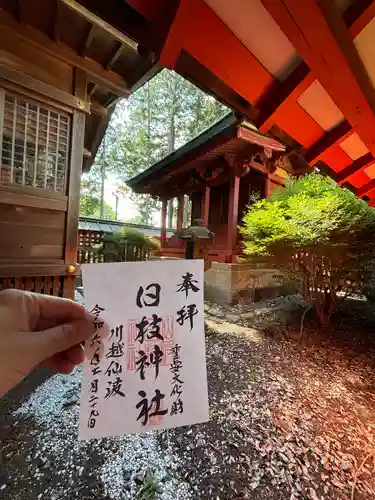 奉拝
重要文化財
日枝神社
川越仙波
令和六年五月二十九日